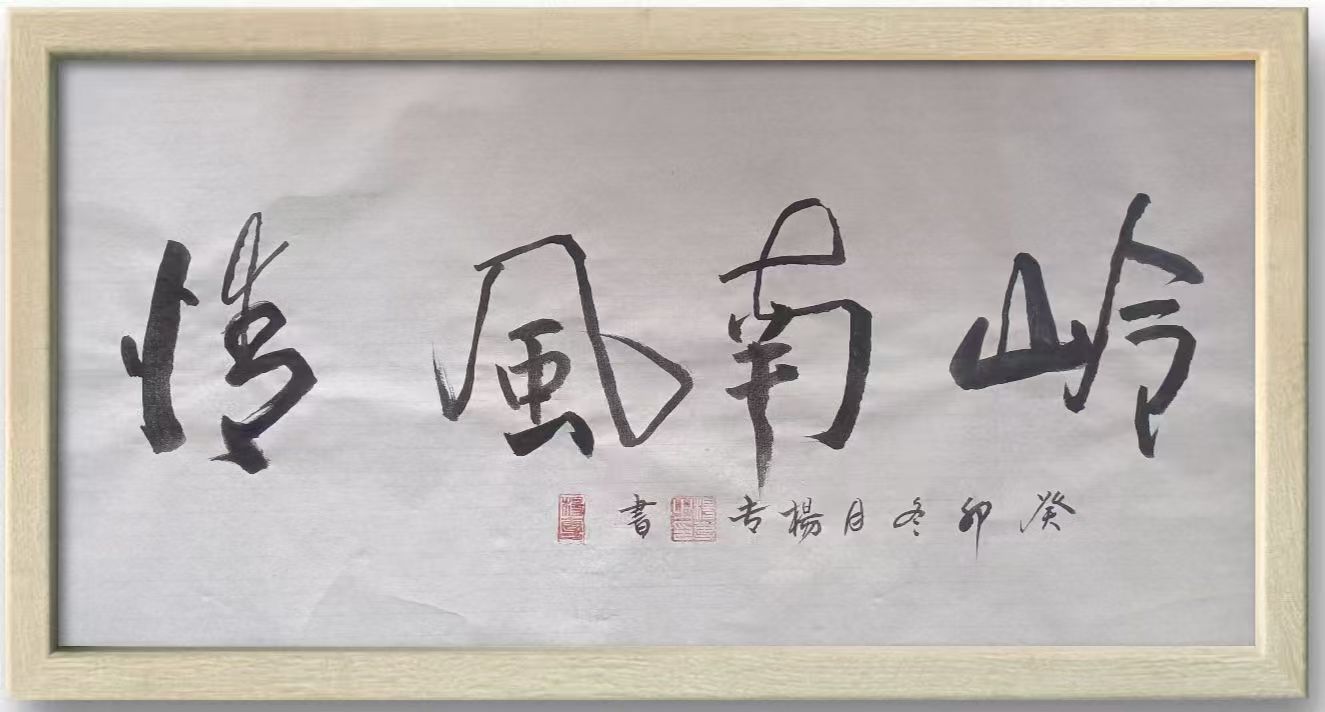 嶺南風情
癸卯冬月楊吉書